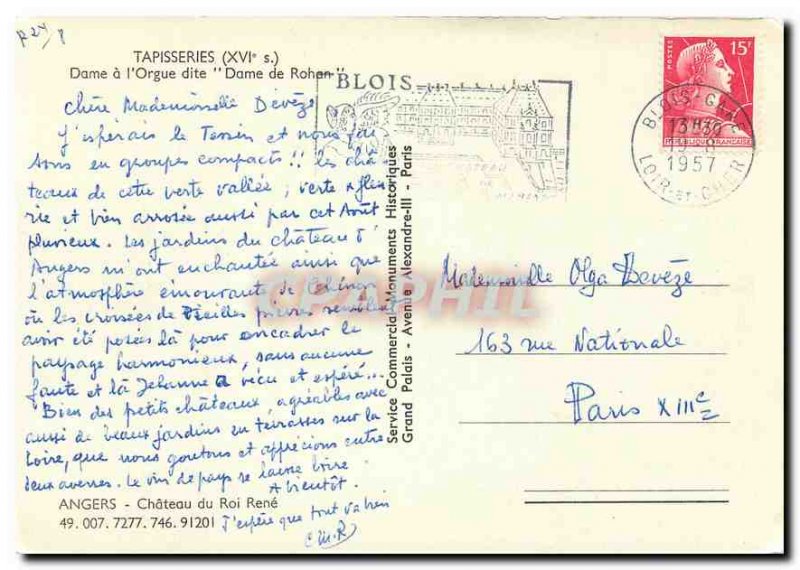 R24 8
TAPISSERIES (XVIe s.)
Dame à l'Orgue dite "Dame de Rohan"
Chère Mademoiselle Devèze
J'espérais le Tessin et nous fai
sons en groupes compacts !! les châ
teaux de cette verte vallée ; verte & fleu
rie et bien arrosée aussi par cet Août
pluvieux. Les jardins du château d'
Angers m'ont enchantée ainsi que
l'atmosphère émouvante de Chinon
où les croisées de vieilles pierres semblent
avoir été posées là pour encadrer le
paysage harmonieux, sans aucune
faute et là Jehanne a vécu et espéré...
Bien des petits châteaux, agréables avec
aussi de beaux jardins en terrasses sur la
Loire, que nous goutons et apprécions entre
deux averses. Le vin de pays se laisse boire
A bientôt.
J'espère que tout va bien
C.M.R
ANGERS - Château du Roi René
49. 007. 7277. 746. 91201
Service Commercial Monuments Historiques
Grand Palais - Avenue Alexandre-III - Paris
BLOIS
POSTES 15F
REPUBLIQUE FRANÇAISE
BLOIS GARE
13H30
1957
LOIR-ET-CHER
Mademoiselle Olga Devèze
163 rue Nationale
Paris XIIIe
CPAPHIL